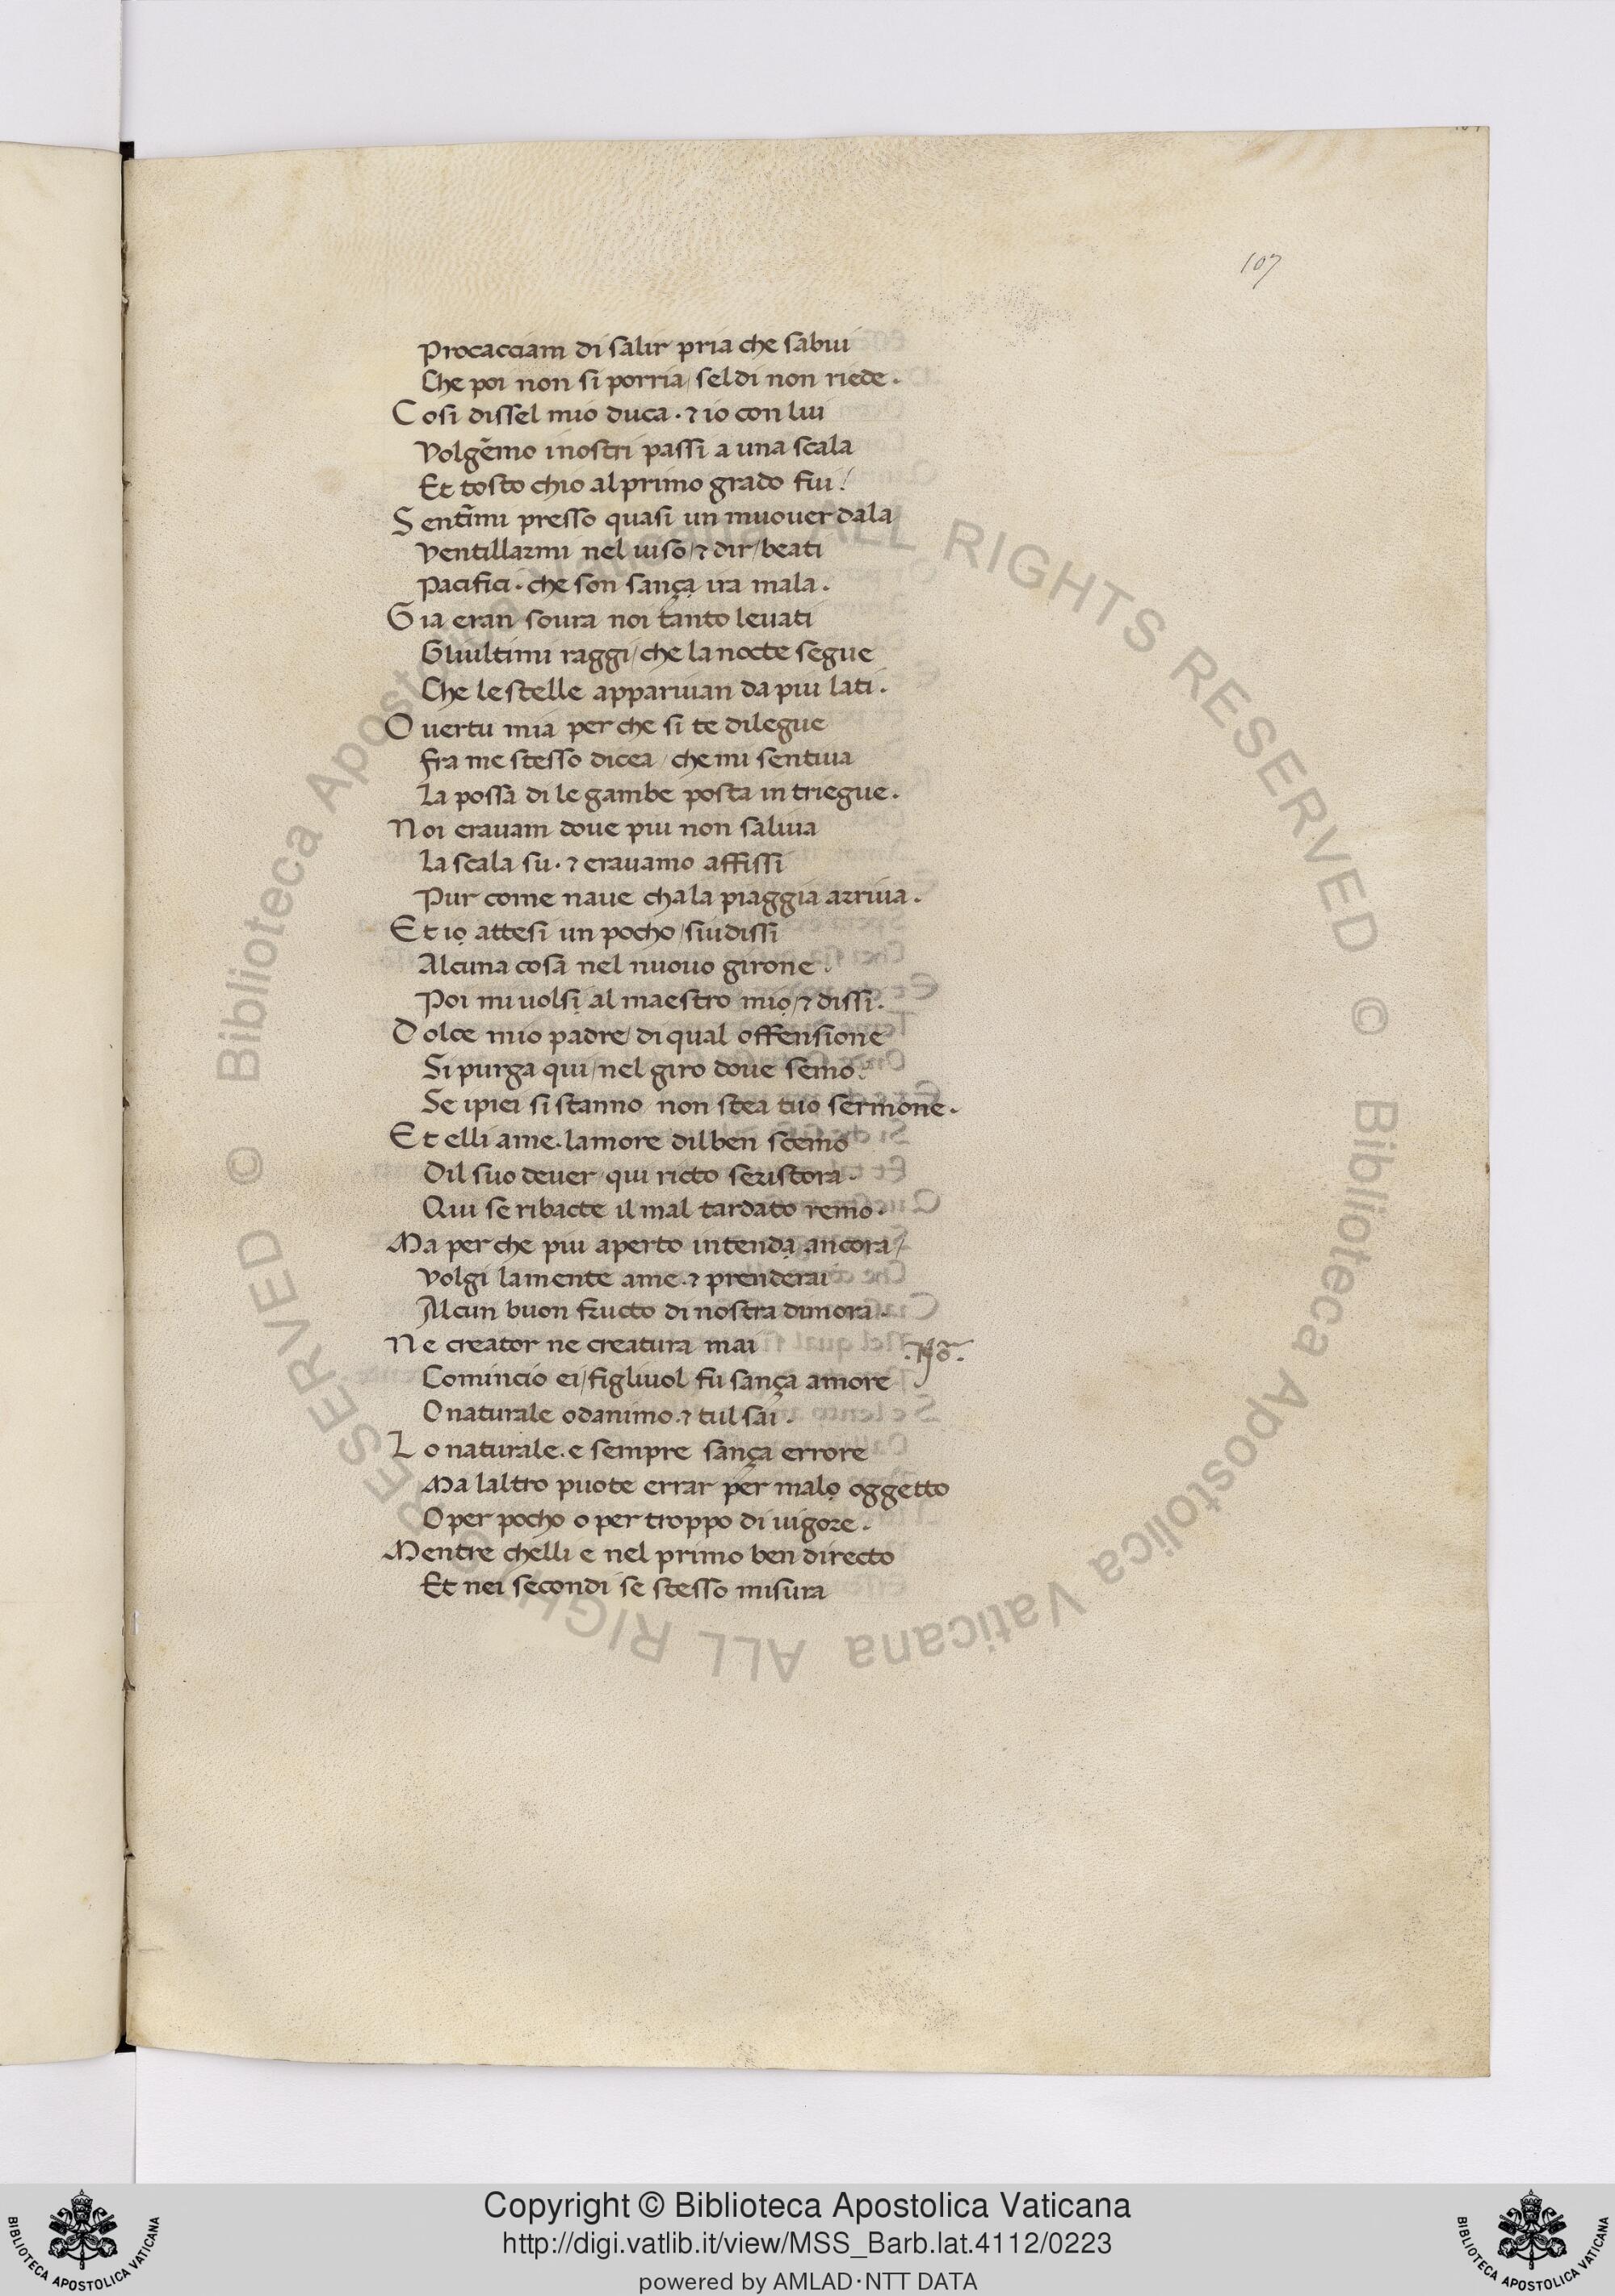 107
Procacciam di salir pria che sabui
Che poi non si porria/ sel di non riede.
Cosi dissel mio duca. ⁊ io con lui
Volgēmo i nostri passi a una scala
Et tosto chio al primo grado fui/
Sentīmi presso quasi un muouer dala
Ventillarmi nel uiso/ ⁊ dir/ beati
Pacifici. che son sança ira mala.
Gia eran soura noi tanto leuati
Gliultimi raggi/ che la nocte segue
Che le stelle appariuian da piu lati.
O uertu mia per che si te dilegue
Fra me stesso dicea/ che mi sentiua
La possa di le gambe posta in triegue.
Noi erauam doue piu non saliua
La scala su. ⁊ erauamo affissi
Pur come naue cha la piaggia arriua.
Et iọ attesi un pocho/ siudissi
Alcuna cosa nel nuouo girone.
Poi mi uolsị al maestro miọ/ ⁊ dissi.
Dolce mio padre/ di qual offensione
Si purga qui/ nel giro doue semo.
Se i piei si stanno/ non stea tuo sermone.
Et elli a me. lamore dil ben scemo
Dil suo deuer/ qui ricto se ristora.
Qui se ribacte il mal tardato remo.
Ma per che piu aperto intendạ ancora/
Volgi la mente a me. ⁊ prenderai
Alcun buon fructo di nostra dimora.
Ne creator ne creatura mai
Comincio ei/ figliuol fu sança amore
O naturale o danimo. ⁊ tul sai.
Lo naturale. e sempre sança errore
Ma laltro puote errar per malọ oggetto
O per pocho o per troppo di uigore.
Mentre chelli e nel primo ben directo
Et nei secondi se stesso misura
© Biblioteca Apostolica Vaticana ALL RIGHTS RESERVED
© Biblioteca Apostolica Vaticana ALL RIGHTS RESERVED
Copyright © Biblioteca Apostolica Vaticana
http://digi.vatlib.it/view/MSS_Barb.lat.4112/0223
powered by AMLAD·NTT DATA
BIBLIOTECA APOSTOLICA VATICANA
BIBLIOTECA APOSTOLICA VATICANA